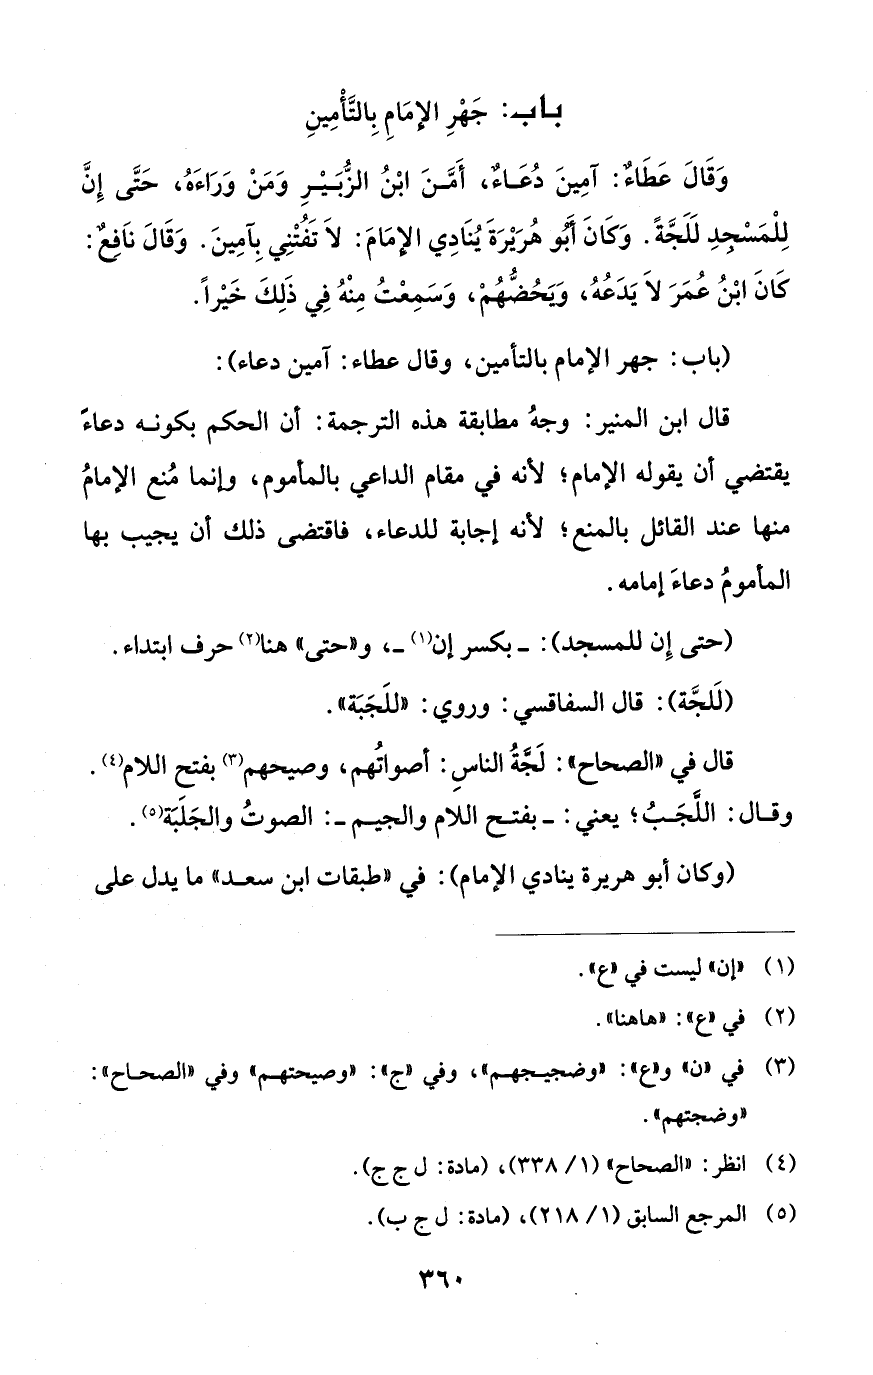 باب: جَهْرِ الإِمَامِ بِالتَّأْمِينِ
وَقَالَ عَطَاءٌ: آمِينَ دُعَاءٌ، أَمَّنَ ابْنُ الزُّبَيْرِ وَمَنْ وَرَاءَهُ، حَتَّى إِنَّ
لِلْمَسْجِدِ لَلَجَّةً. وَكَانَ أَبُو هُرَيْرَةَ يُنَادِي الإِمَامَ: لاَ تَفُتْنِي بِآمِينَ. وَقَالَ نَافِعٌ:
كَانَ ابْنُ عُمَرَ لاَ يَدَعُهُ، وَيَحُضُّهُمْ، وَسَمِعْتُ مِنْهُ فِي ذَلِكَ خَيْراً.
(باب: جهر الإمام بالتأمين، وقال عطاء: آمين دعاء):
قال ابن المنير: وجهُ مطابقة هذه الترجمة: أن الحكم بكونه دعاءً
يقتضي أن يقوله الإمام؛ لأنه في مقام الداعي بالمأموم، وإنما مُنع الإمامُ
منها عند القائل بالمنع؛ لأنه إجابة للدعاء، فاقتضى ذلك أن يجيب بها
المأمومُ دعاءَ إمامه.
(حتى إِن للمسجد): ـ بكسر إن(١) ـ، و«حتى» هنا(٢) حرف ابتداء.
(لَلجَّة): قال السفاقسي: وروي: «للَجَبَة».
قال في «الصحاح»: لَجَّةُ الناسِ: أصواتُهم، وصيحهم(٣) بفتح اللام(٤).
وقال: اللَّجَبُ؛ يعني: ـ بفتح اللام والجيم ـ: الصوتُ والجَلَبَة(٥).
(وكان أبو هريرة ينادي الإمام): في «طبقات ابن سعد» ما يدل على
(١) «إن» ليست في «ع».
(٢) في «ع»: «هاهنا».
(٣) في «ن» و«ع»: «وضجيجهم»، وفي «ج»: «وصيحتهم» وفي «الصحاح»:
«وضجتهم».
(٤) انظر: «الصحاح» (١/ ٣٣٨)، (مادة: ل ج ج).
(٥) المرجع السابق (١/ ٢١٨)، (مادة: ل ج ب).
٣٦٠